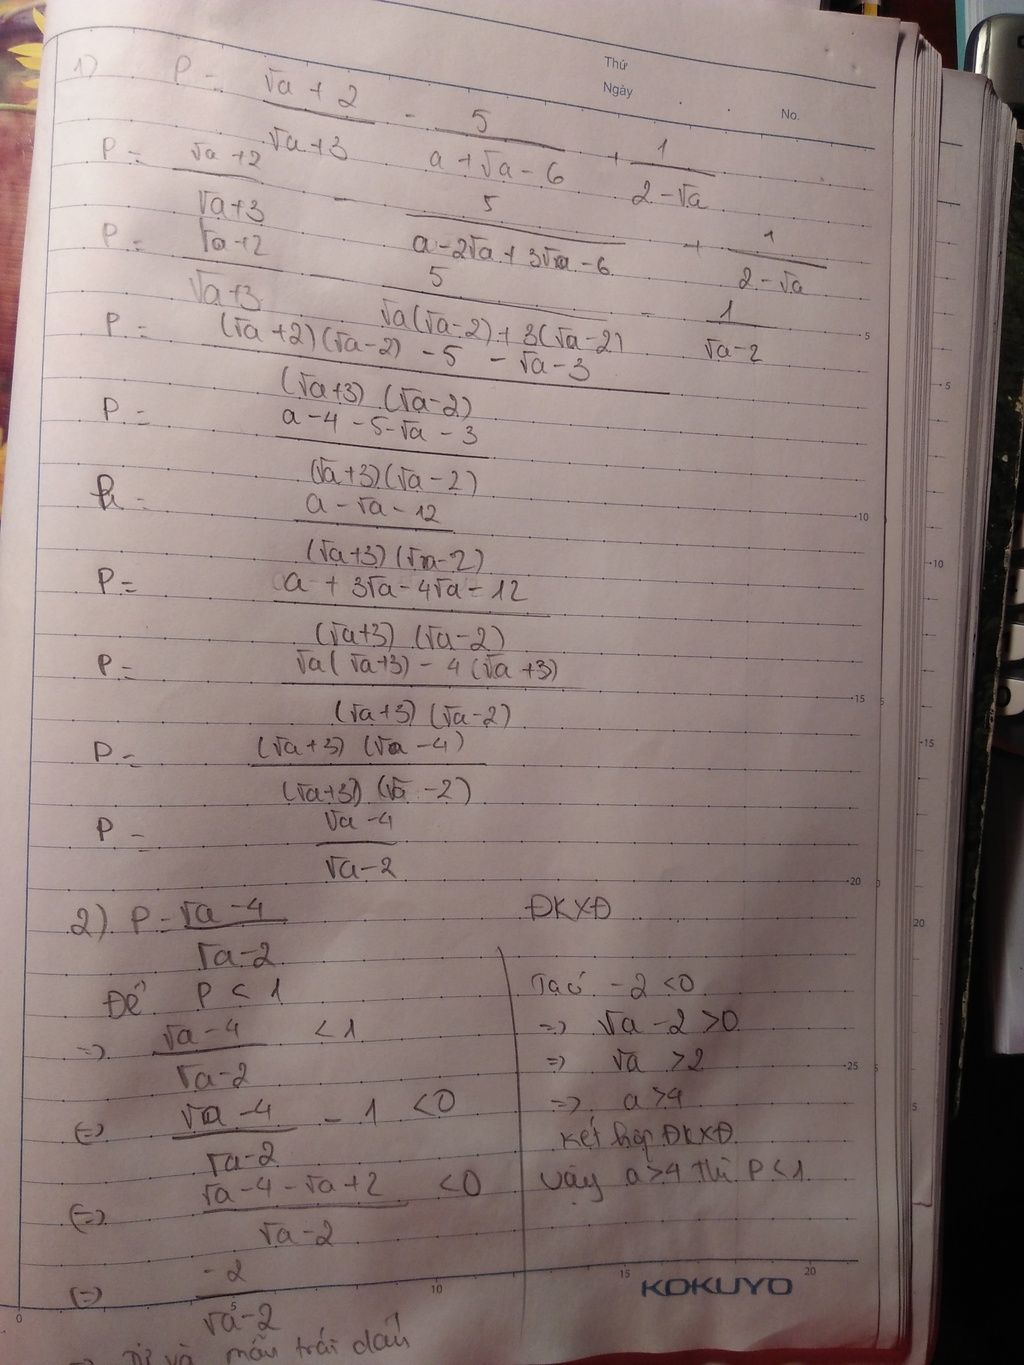 Thứ
Ngày
No.
1) P = (√a + 2)/(√a + 3) - 5/(a + √a - 6) + 1/(2 - √a)
P = (√a + 2)/(√a + 3) - 5/(a - 2√a + 3√a - 6) + 1/(2 - √a)
P = (√a + 2)/(√a + 3) - 5/(√a(√a - 2) + 3(√a - 2)) - 1/(√a - 2)
P = ((√a + 2)(√a - 2) - 5 - √a - 3)/((√a + 3)(√a - 2))
P = (a - 4 - 5 - √a - 3)/((√a + 3)(√a - 2))
P = (a - √a - 12)/((√a + 3)(√a - 2))
P = (a + 3√a - 4√a - 12)/((√a + 3)(√a - 2))
P = (√a(√a + 3) - 4(√a + 3))/((√a + 3)(√a - 2))
P = ((√a + 3)(√a - 4))/((√a + 3)(√a - 2))
P = (√a - 4)/(√a - 2)
2) P = (√a - 4)/(√a - 2)
Để P < 1
=> (√a - 4)/(√a - 2) < 1
(=) (√a - 4)/(√a - 2) - 1 < 0
(=) (√a - 4 - √a + 2)/(√a - 2) < 0
(=) -2/(√a - 2)
=> Tử và mẫu trái dấu
ĐKXĐ
Ta có -2 < 0
=> √a - 2 > 0
=> √a > 2
=> a > 4
Kết hợp ĐKXĐ
Vậy a > 4 thì P < 1
KOKUYO
5
10
15
20
25
0
5
10
15
20
5
10
15
20
5